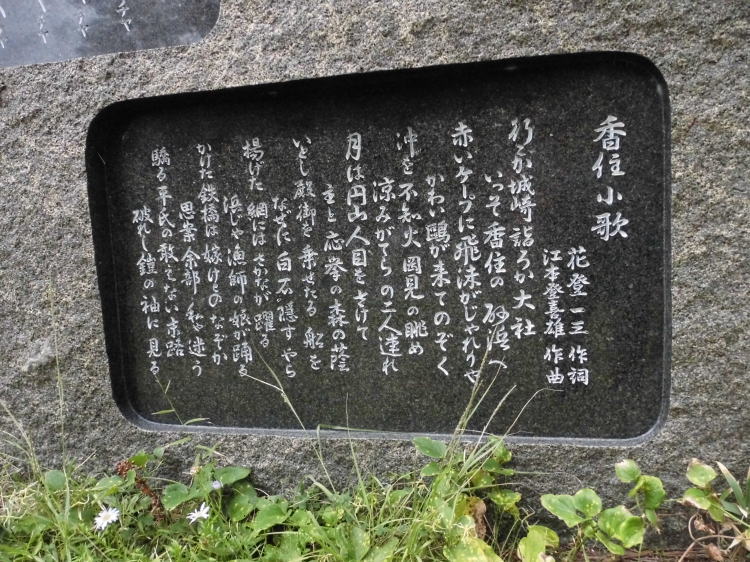 香住小歌
花登一三 作詞
江本登喜雄 作曲
行か城崎 詣ろか大社
いっそ香住の 砂浜へ
赤いケープに飛沫がじゃれりゃ
かわい鴎が来てのぞく
沖を不知火 岡見の眺め
涼みがてらの二人連れ
月は円山人目をさけて
主と応挙の森の蔭
いとし殿御を乗せたる 船を
なぜに白石隠すやら
揚げた 網には さかなが躍る
浜じゃ漁師の娘が踊る
かけた鉄橋は嫁けとのなぞか
思案余部 私や迷う
驕る平氏の敢えない末路
破れし鎧の袖に見る